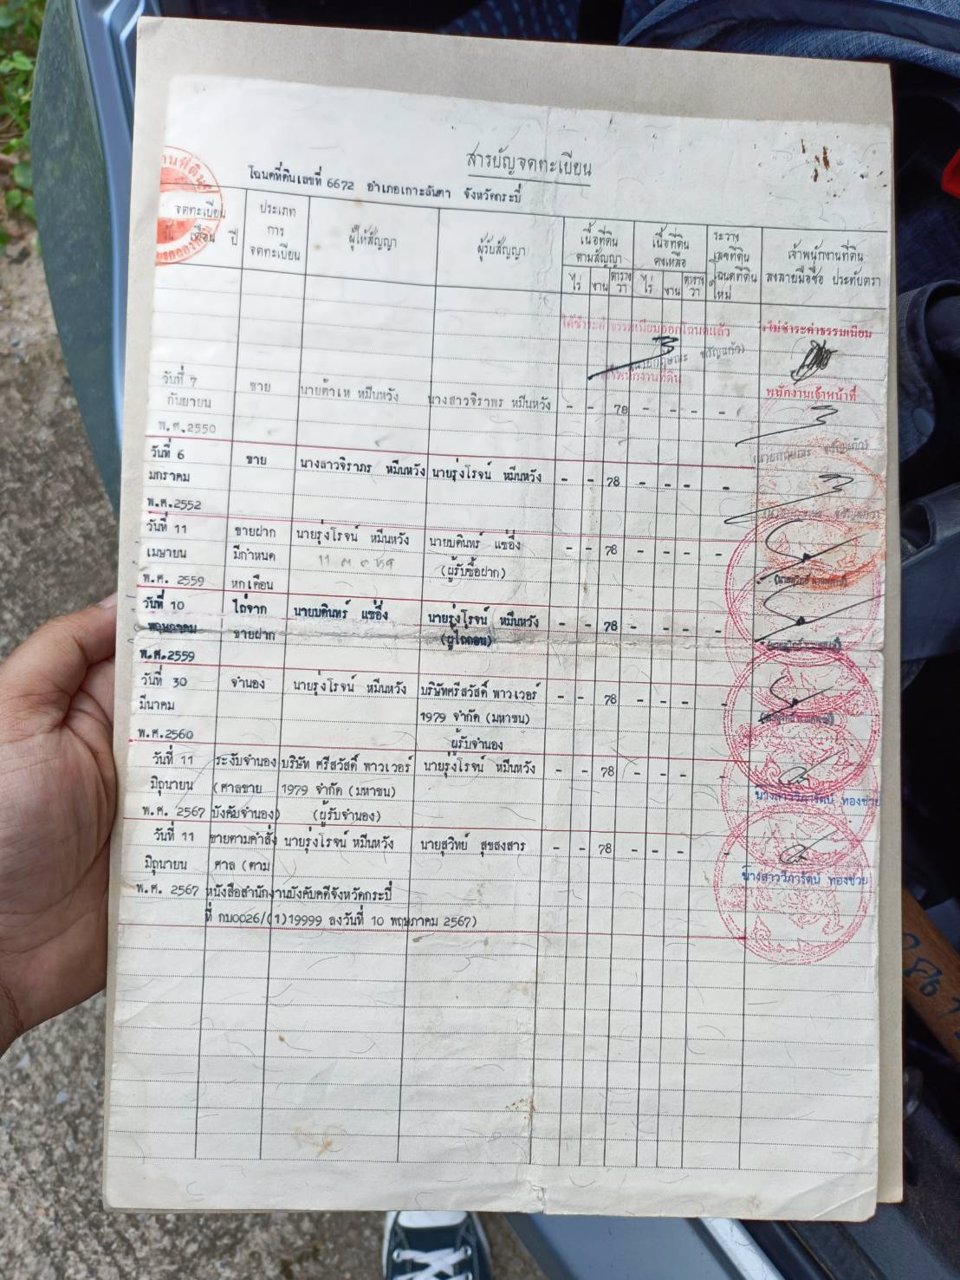 สารบัญจดทะเบียน
โฉนดที่ดินเลขที่ 6672 อำเภอเกาะลันตา จังหวัดกระบี่
จดทะเบียน
วัน เดือน ปี
ประเภท
การ
จดทะเบียน
ผู้ให้สัญญา
ผู้รับสัญญา
เนื้อที่ดิน
ตามสัญญา
ไร่ งาน ตารางวา
เนื้อที่ดิน
คงเหลือ
ไร่ งาน ตารางวา
ระวาง
เลขที่ดิน
โฉนดที่ดิน
ใหม่
เจ้าพนักงานที่ดิน
ลงลายมือชื่อ ประทับตรา
ได้ชำระค่าธรรมเนียมออกโฉนดแล้ว
ไม่ชำระค่าธรรมเนียม
พนักงานเจ้าหน้าที่
วันที่ 7 ขาย นายต้าเห หมีนหวัง นางสาวจิราพร หมีนหวัง - - 78 - - - -
กันยายน
พ.ศ.2550
วันที่ 6 ขาย นางสาวจิราภร หมีนหวัง นายรุ่งโรจน์ หมีนหวัง - - 78 - - - -
มกราคม
พ.ศ.2552
วันที่ 11 ขายฝาก นายรุ่งโรจน์ หมีนหวัง นายบดินทร์ แซ่อึ่ง - - 78 - - - -
เมษายน มีกำหนด (ผู้รับซื้อฝาก)
พ.ศ. 2559 หกเดือน
วันที่ 10 ไถ่จาก นายบดินทร์ แซ่อึ่ง นายรุ่งโรจน์ หมีนหวัง - - 78 - - - -
พฤษภาคม ขายฝาก (ผู้ไถ่ถอน)
พ.ศ.2559
วันที่ 30 จำนอง นายรุ่งโรจน์ หมีนหวัง บริษัทศรีสวัสดิ์ พาวเวอร์ - - 78 - - - -
มีนาคม 1979 จำกัด (มหาชน)
พ.ศ.2560 ผู้รับจำนอง
วันที่ 11 ระงับจำนอง บริษัท ศรีสวัสดิ์ พาวเวอร์ นายรุ่งโรจน์ หมีนหวัง - - 78 - - - -
มิถุนายน (ศาลขาย 1979 จำกัด (มหาชน)
พ.ศ. 2567 บังคับจำนอง) (ผู้รับจำนอง)
นางสาววิภารัตน์ ทองช่วย
วันที่ 11 ขายตามคำสั่ง นายรุ่งโรจน์ หมีนหวัง นายสุวิทย์ สุขสงสาร - - 78 - - - -
มิถุนายน ศาล (ตาม
พ.ศ. 2567 หนังสือสำนักงานบังคับคดีจังหวัดกระบี่
ที่ กบ0026/(1)19999 ลงวันที่ 10 พฤษภาคม 2567)
นางสาววิภารัตน์ ทองช่วย